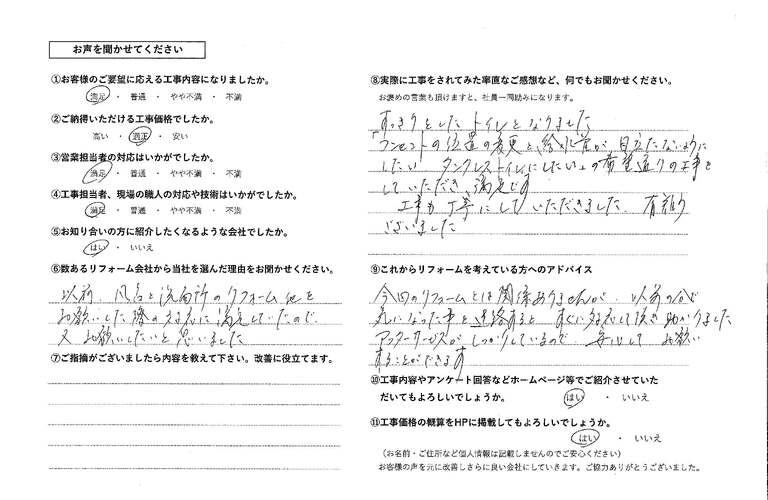 お声を聞かせてください
①お客様のご要望に応える工事内容になりましたか。
満足 ・ 普通 ・ やや不満 ・ 不満
②ご納得いただける工事価格でしたか。
高い ・ 適正 ・ 安い
③営業担当者の対応はいかがでしたか。
満足 ・ 普通 ・ やや不満 ・ 不満
④工事担当者、現場の職人の対応や技術はいかがでしたか。
満足 ・ 普通 ・ やや不満 ・ 不満
⑤お知り合いの方に紹介したくなるような会社でしたか。
はい ・ いいえ
⑥数あるリフォーム会社から当社を選んだ理由をお聞かせください。
以前、風呂と洗面所のリフォーム他を
お願いした際の対応に満足していたので、
又お願いしたいと思いました
⑦ご指摘がございましたら内容を教えて下さい。改善に役立てます。
⑧実際に工事をされてみた率直なご感想など、何でもお聞かせください。
お褒めの言葉も頂けますと、社員一同励みになります。
すっきりとしたトイレとなりました
「コンセントの位置の変更と、給水管が目立たないように
したい タンクレストイレにしたい」の希望通りの工事を
していただき、満足です
工事も丁寧にしていただきました、有難う
ございました
⑨これからリフォームを考えている方へのアドバイス
今回のリフォームとは関係ありませんが、以前の分で
気になった事を連絡すると すぐに対応して頂き助かりました
アフターサービスがしっかりしているので、安心してお願い
することができます
⑩工事内容やアンケート回答などホームページ等でご紹介させていた
だいてもよろしいでしょうか。 はい ・ いいえ
⑪工事価格の概算をHPに掲載してもよろしいでしょうか。
はい ・ いいえ
（お名前・ご住所など個人情報は記載しませんのでご安心ください）
お客様の声を元に改善しさらに良い会社にしていきます。ご協力ありがとうございました。